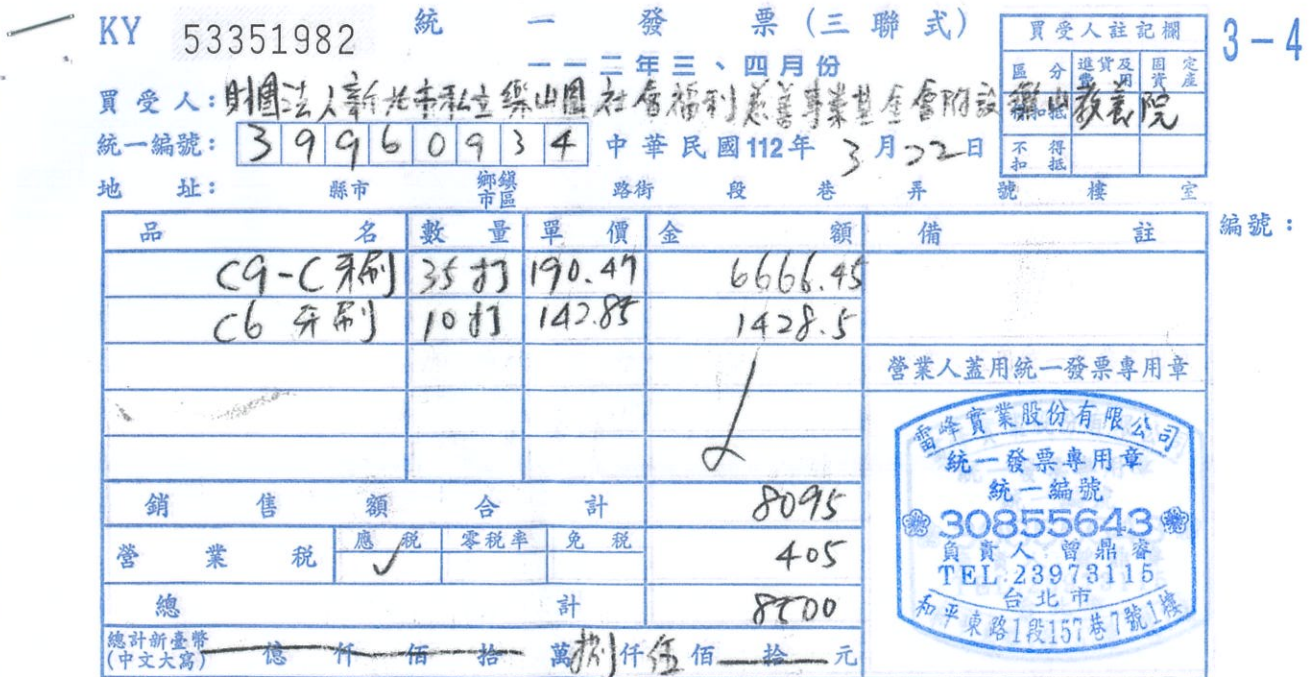 KY 53351982 統一發票(三聯式) 3-4
一一二年三、四月份
買受人註記欄
區分 進貨及費用 固定資產
得扣抵
不得扣抵
買受人:財團法人新北市私立樂山園社會福利慈善事業基金會附設樂山教養院
統一編號: 39960934 中華民國112年3月22日
地址: 縣市 鄉鎮市區 路街 段 巷 弄 號 樓 室
品名 數量 單價 金額 備註 編號:
C9-C 牙刷 35打 190.47 6666.45
C6 牙刷 10打 142.85 1428.5
營業人蓋用統一發票專用章
銷售額合計 8095
營業稅 應稅 ✓ 零稅率 免稅 405
總計 8500
總計新臺幣(中文大寫) 億 仟 佰 拾 萬捌仟伍佰 拾 元
雷峰實業股份有限公司
統一發票專用章
統一編號
30855643
負責人:曾鼎睿
TEL:23973115
台北市
和平東路1段157巷7號1樓